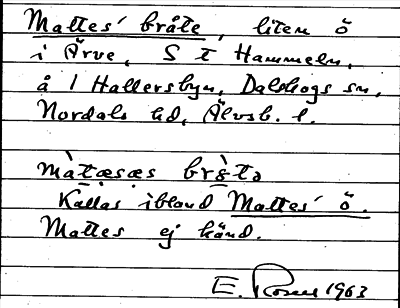 Mattes' bråte, liten ö
i Ärve, S t Hammeln,
å 1 Hallersbyn, Dalskogs sn,
Nordals hd, Älvsb. l.
màtæsæs br
Kallas ibland Mattes' ö.
Mattes ej känd.
E. 1963